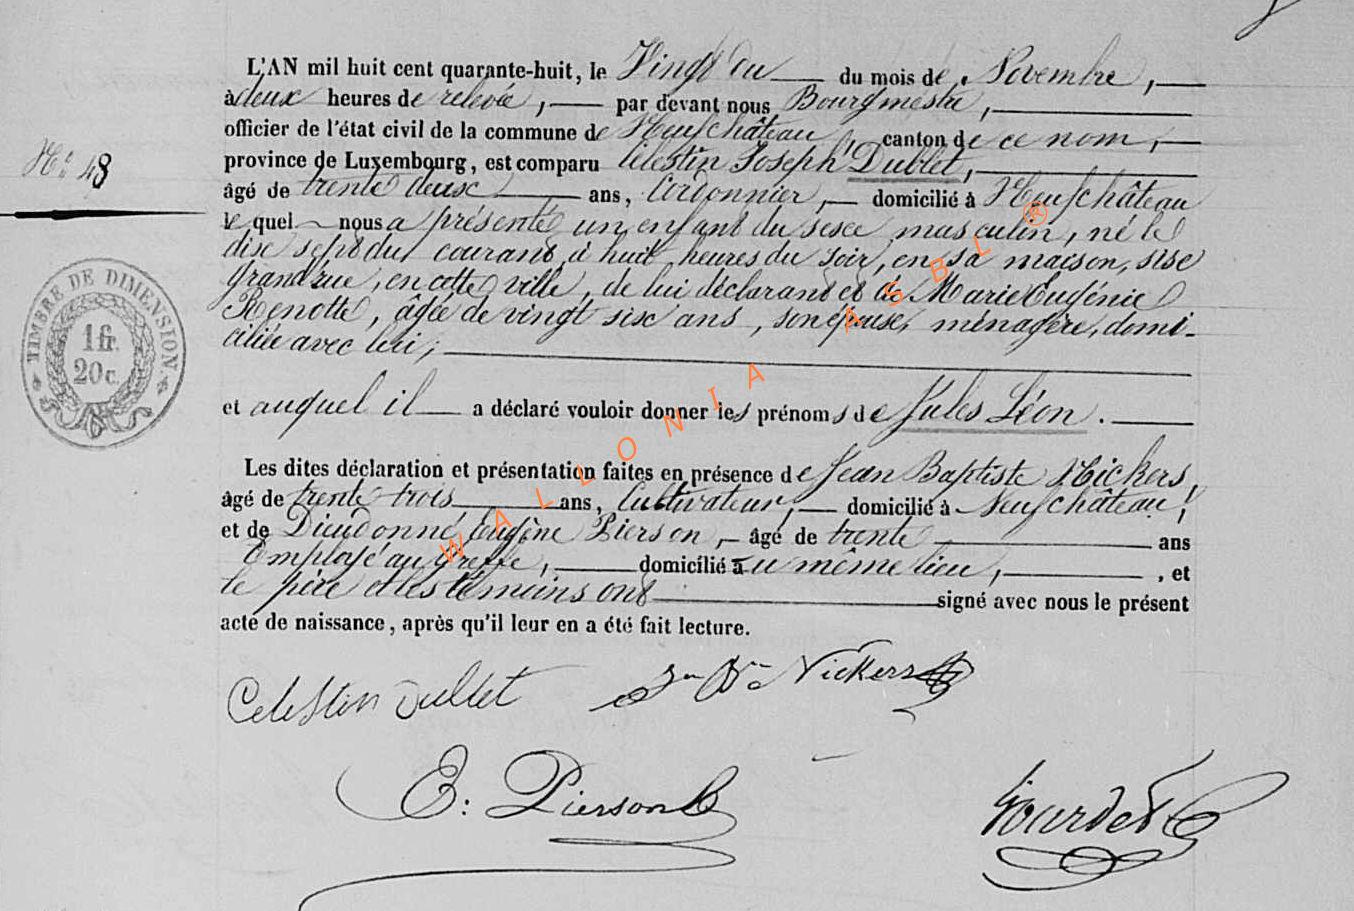 L'AN mil huit cent quarante-huit, le Vingt du du mois de Novembre,
à deux heures de relevée, par devant nous Bourgmestre,
officier de l'état civil de la commune de Neufchâteau, canton de ce nom,
province de Luxembourg, est comparu Célestin Joseph Dublet,
N° 48
âgé de trente deux ans, Cordonnier, domicilié à Neufchâteau
le quel nous a présenté un enfant du sexe masculin, né le
dix sept du courant, à huit heures du soir, en sa maison, sise
grand rue, en cette ville, de lui déclarant et de Marie Eugénie
Renotte, âgée de vingt six ans, son épouse, ménagère, domi-
ciliée avec lui;
TIMBRE DE DIMENSION
1 fr.
20 c.
et auquel il a déclaré vouloir donner les prénoms de Jules Léon.
Les dites déclaration et présentation faites en présence de Jean Baptiste Nickers,
âgé de trente trois ans, Cultivateur, domicilié à Neufchâteau,
et de Dieudonné Eugène Pierson, âgé de trente ans
Employé au greffe, domicilié au même lieu, , et
le père et les témoins ont signé avec nous le présent
acte de naissance, après qu'il leur en a été fait lecture.
Celestin Dublet Jn Bte Nickers
E: Pierson
WALLONIA ASBL ®